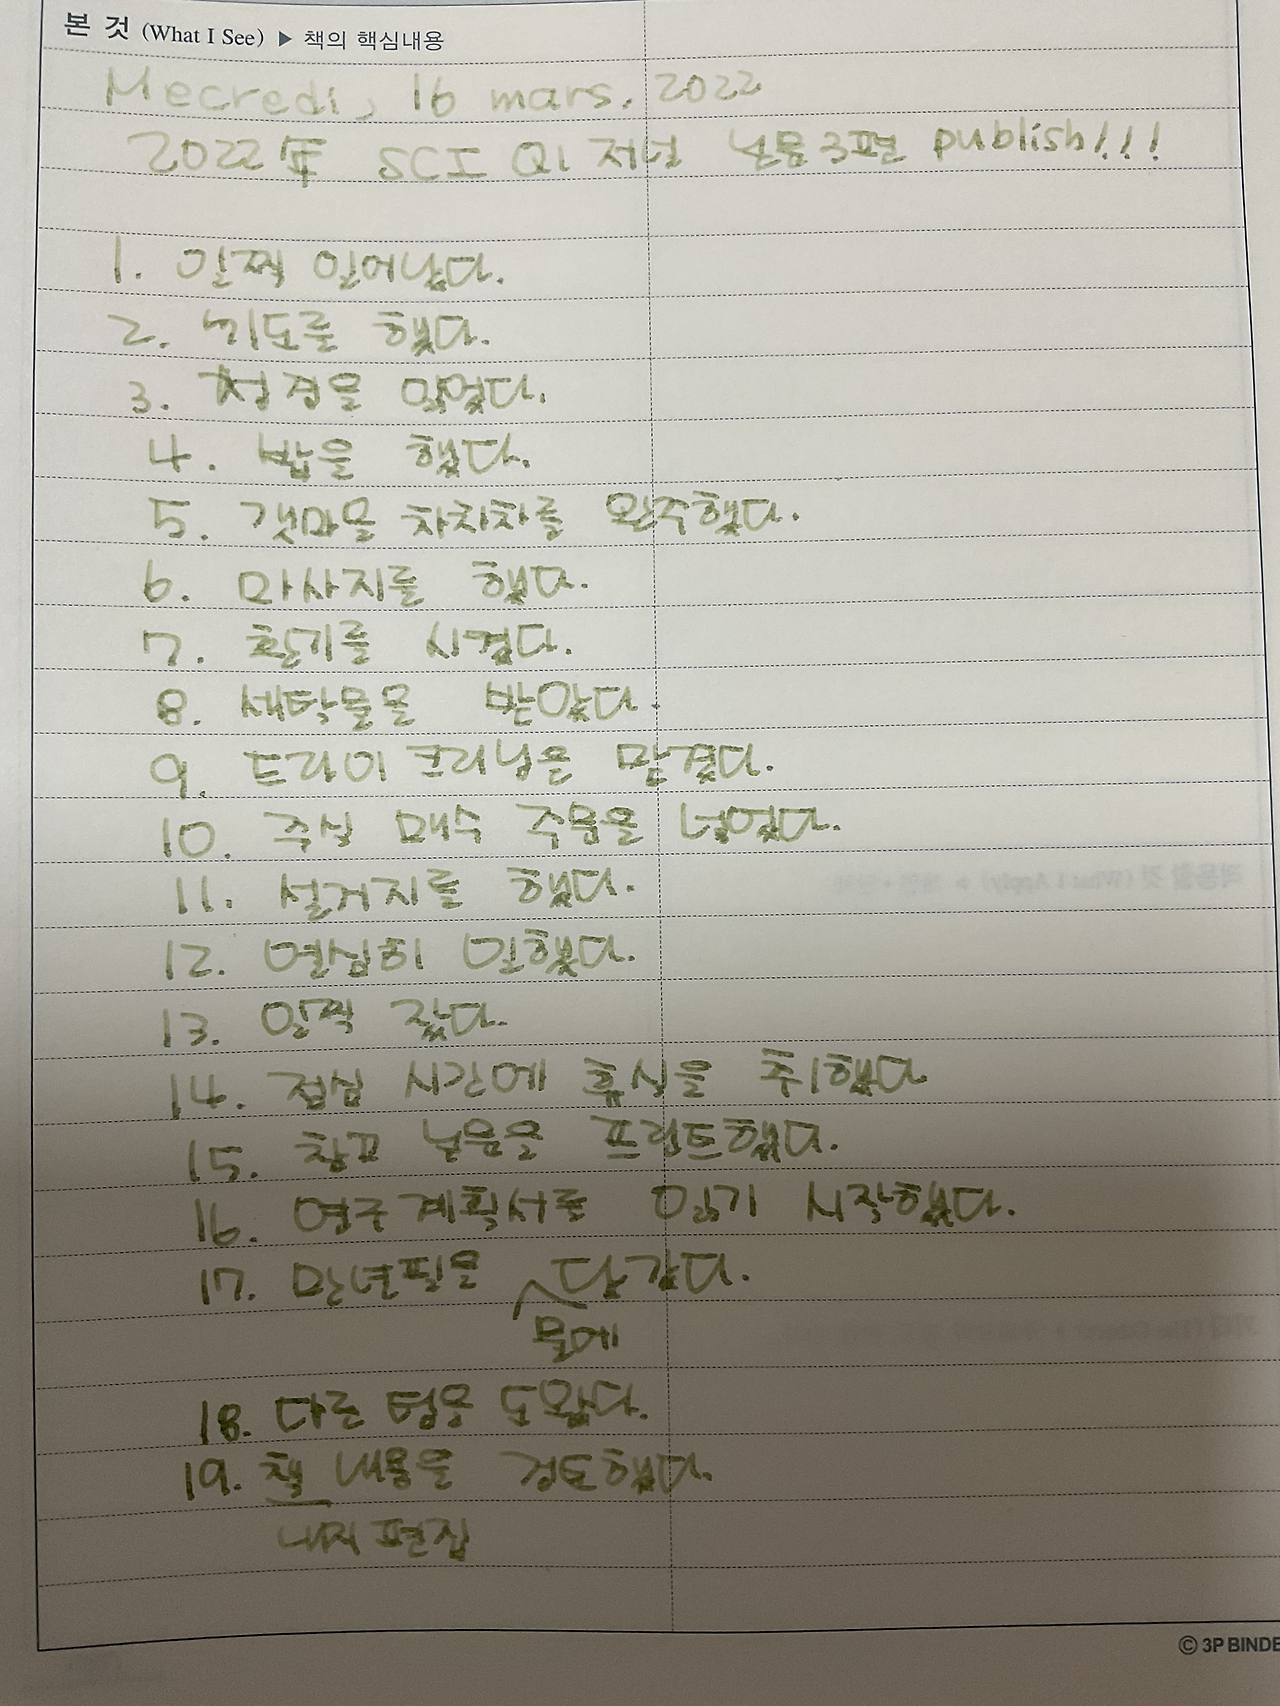 본 것 (What I See) ▶ 책의 핵심내용
Mecredi, 16 mars. 2022
2022年 SCI Q1 저널 논문 3편 publish!!!
1. 일찍 일어났다.
2. 기도를 했다.
3. 성경을 읽었다.
4. 밥을 했다.
5. 갯마을 차차차를 완주했다.
6. 마사지를 했다.
7. 환기를 시켰다.
8. 세탁물을 받았다.
9. 드라이 크리닝을 맡겼다.
10. 주식 매수 주문을 넣었다.
11. 설거지를 했다.
12. 열심히 일했다.
13. 일찍 잤다.
14. 점심 시간에 휴식을 취했다
15. 참고 논문을 프린트했다.
16. 연구계획서를 읽기 시작했다.
17. 만년필을 담갔다.
물에
18. 다른 팀을 도왔다.
19. 책 내용을 검토했다.
내지 편집
© 3P BINDE